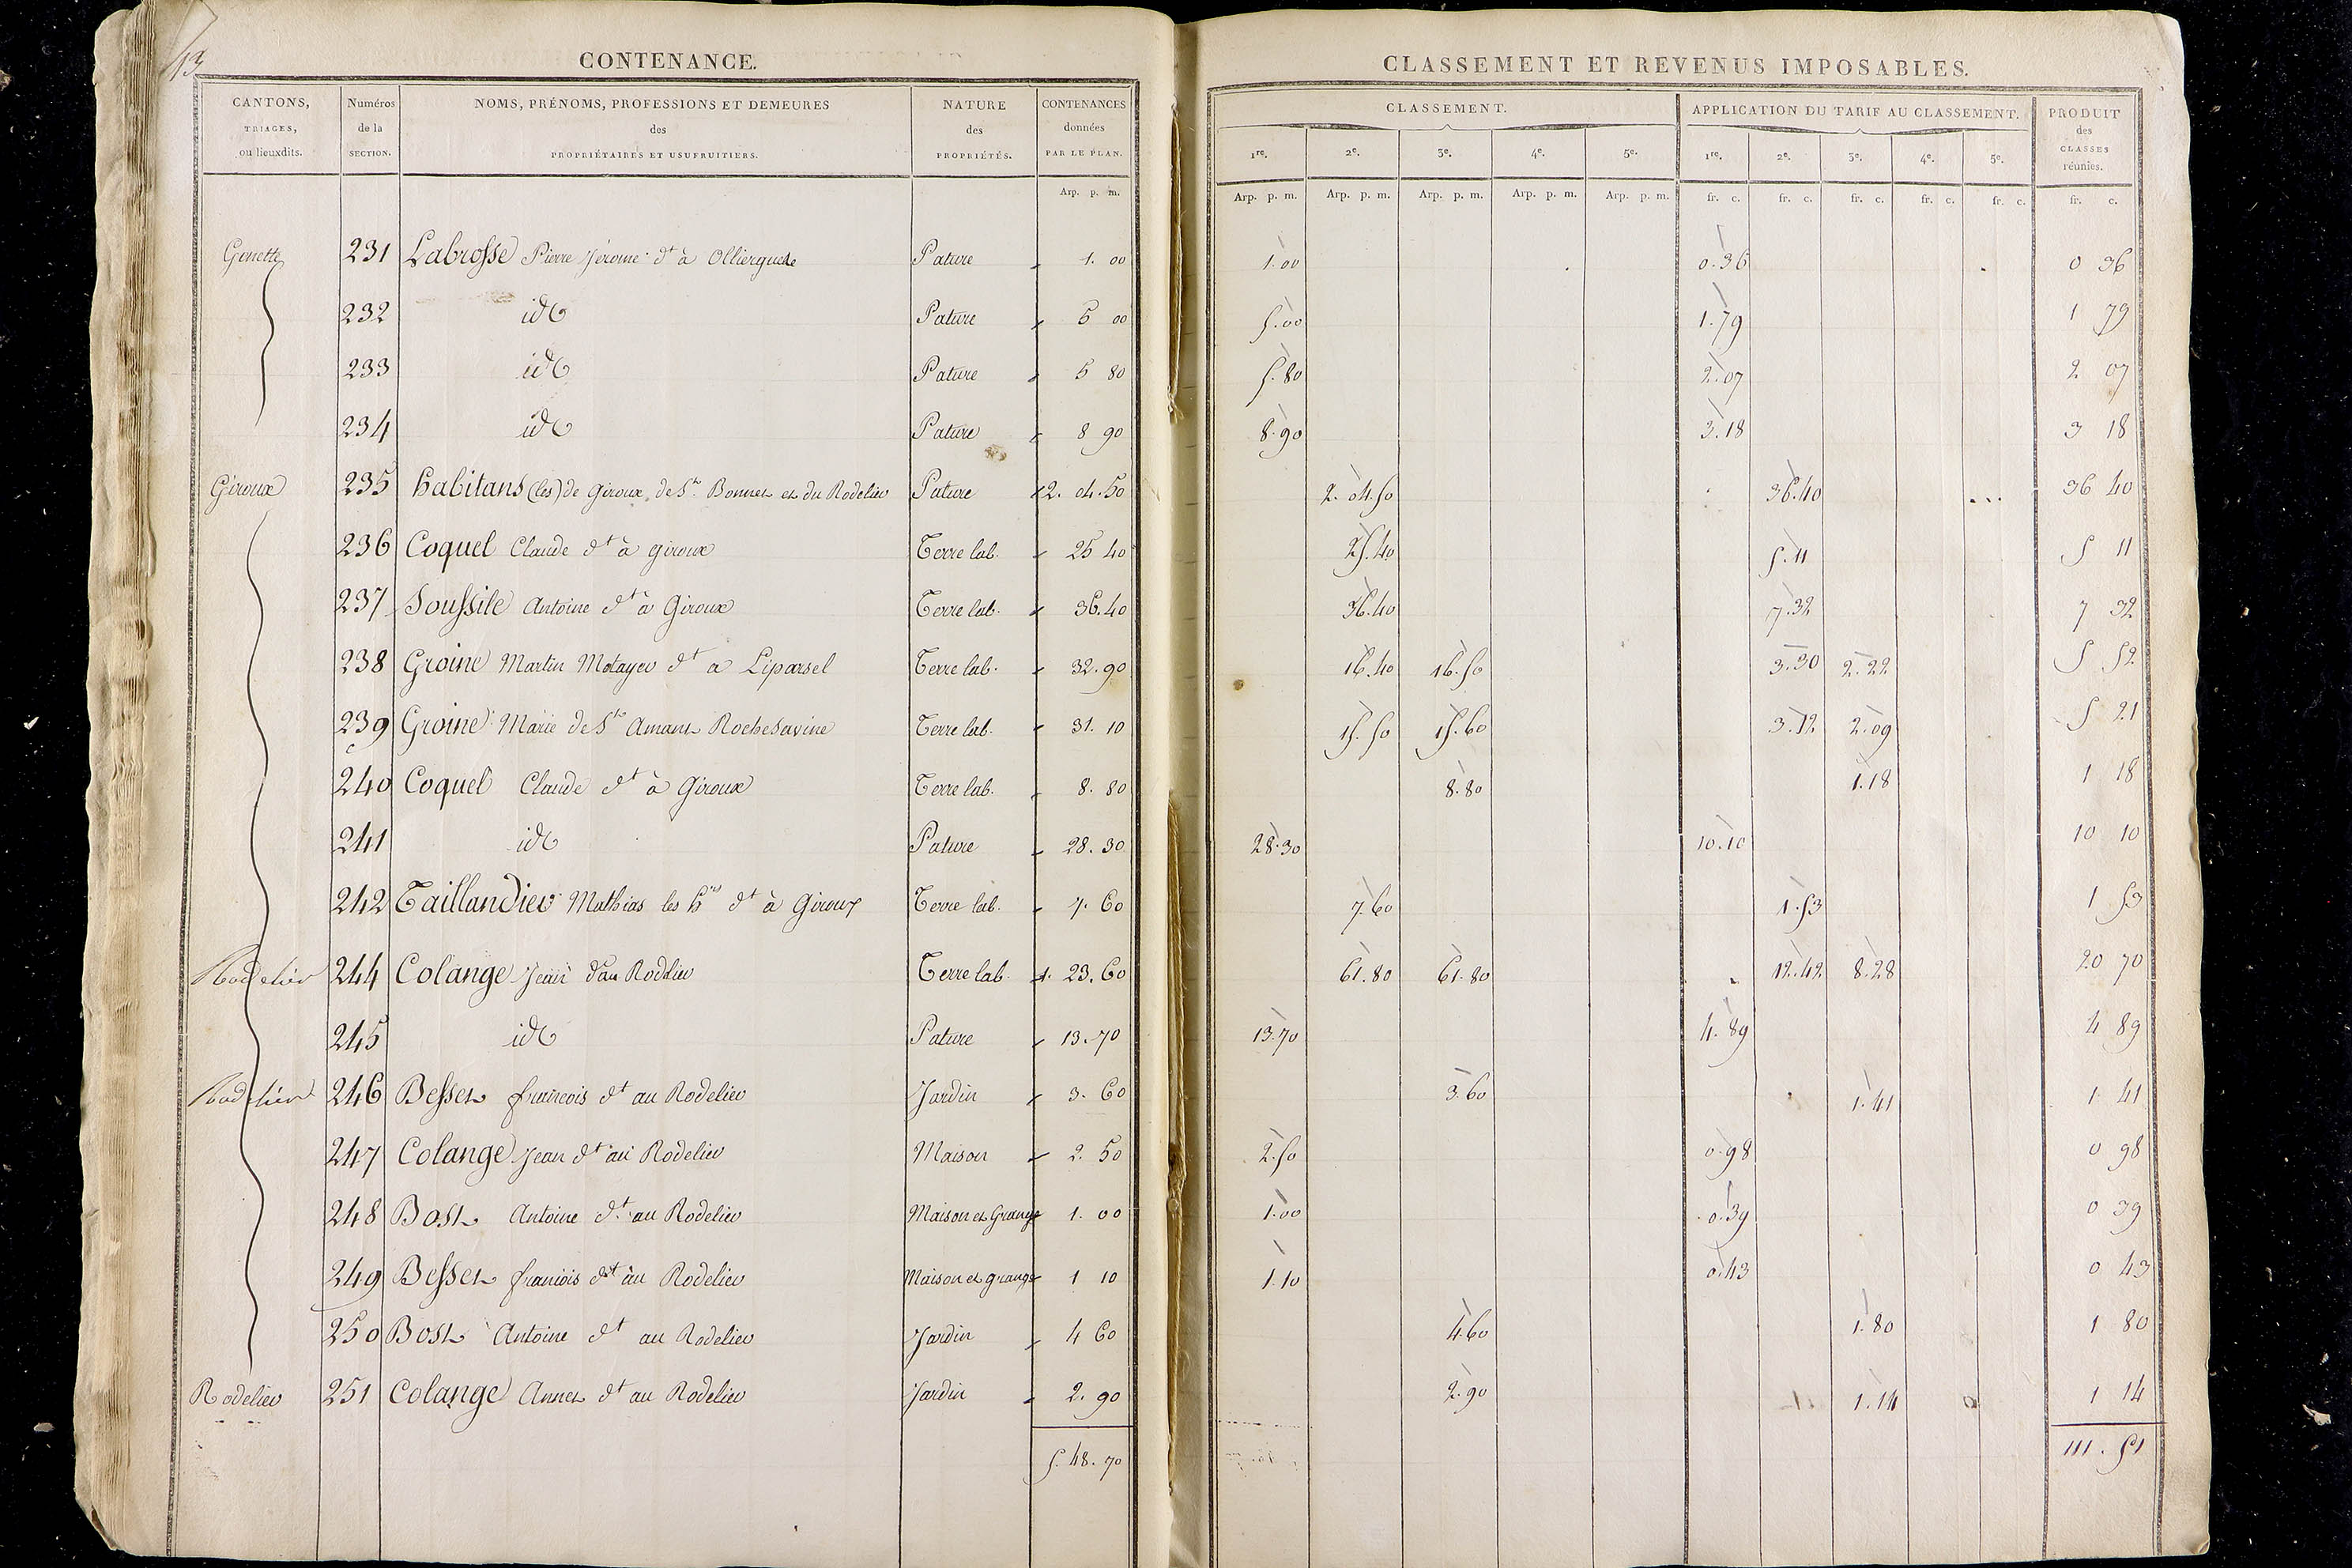 13
CONTENANCE.
CANTONS, TRIAGES, ou lieuxdits. Numéros de la SECTION. NOMS, PRÉNOMS, PROFESSIONS ET DEMEURES des PROPRIÉTAIRES ET USUFRUITIERS. NATURE des PROPRIÉTÉS. CONTENANCES données PAR LE PLAN.
Arp. p. m.
CLASSEMENT ET REVENUS IMPOSABLES.
CLASSEMENT. APPLICATION DU TARIF AU CLASSEMENT. PRODUIT des CLASSES réunies.
1re. 2e. 3e. 4e. 5e. 1re. 2e. 3e. 4e. 5e.
Arp. p. m. Arp. p. m. Arp. p. m. Arp. p. m. Arp. p. m. fr. c. fr. c. fr. c. fr. c. fr. c. fr. c.
Genette 231 Labrosse Pierre Jérome dt à Pature 1. 00 1.00 0.36 0 36
232 id Pature 5 00 5.00 1.79 1 79
233 id Pature 5 80 5.80 2.07 2 07
234 id Pature 8 90 8.90 3.18 3 18
Giroux 235 habitans (les) de Giroux, de St. Bonnet et du Rodelier Pature 2. 04.50 2. 04.50 36.40 36 40
236 Coquel Claude dt à giroux Terre lab. 25 40 25.40 5.11 5 11
237 Soussile Antoine dt à Giroux Terre lab. 36.40 36.40 7.32 7 32
238 Groine Martin Metayer dt a Liparsel Terre lab. 32.90 16.40 16.50 3.30 2.22 5 52
239 Groine Marie de St Amant Rochesavine Terre lab. 31. 10 15.50 15.60 3.12 2.09 5 21
240 Coquel Claude dt à Giroux Terre lab. 8. 80 8.80 1.18 1 18
241 id Pature 28. 30 28.30 10.10 10 10
242 Taillandier Mathias les hrs dt à Giroux Terre lab. 7. 60 7.60 1.53 1 53
Rodelier 244 Colange Jean dt au Rodelier Terre lab. 1. 23.60 61.80 61.80 12.42 8.28 20 70
245 id Pature 13.70 13.70 4.89 4 89
Rodelier 246 Besset francois dt au Rodelier Jardin 3. 60 3.60 1.41 1. 41
247 Colange Jean dt au Rodelier Maison 2. 50 2.50 0.98 0 98
248 Bost Antoine dt au Rodelier Maison et Grange 1. 00 1.00 0.39 0 39
249 Besset francois dt au Rodelier Maison et grange 1 10 1.10 0.43 0 43
250 Bost Antoine dt au Rodelier Jardin 4 60 4.60 1.80 1 80
Rodelier 251 Colange Annet dt au Rodelier Jardin 2. 90 2.90 1.14 1 14
5. 48. 70 111. 51